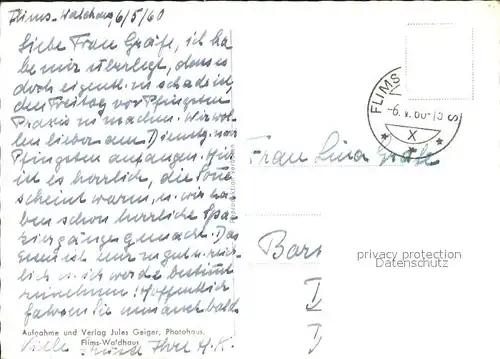 Flims-Waldhaus, 6/5/60
Liebe Frau Gräfe, ich ha-
be mir überlegt, dass es
doch eigentl. zu schade ist,
den Freitag vor Pfingsten
Praxis zu machen. Wir wol-
len lieber am Dienstg. nach
Pfingsten anfangen. Hier
ist es herrlich, die Sonne
scheint warm, u. wir ha-
ben schon herrliche Spa-
ziergänge gemacht. Das
Essen ist nur zu gut u. reich-
lich u. ich werde bestimmt
zunehmen! Hoffentlich
fahren Sie nun auch bald.
Viele Grüsse Ihre H. K.
Aufnahme und Verlag Jules Geiger, Photohaus,
Flims-Waldhaus
FLIMS
-6. V. 60-
X
Frau Lina Gräfe
Bars
privacy protection
Datenschutz